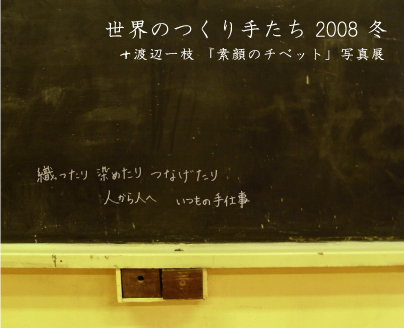 世界のつくり手たち 2008 冬
+渡辺一枝 「素顔のチベット」 写真展
織ったり 染めたり つなげたり
人から人へ いつもの手仕事